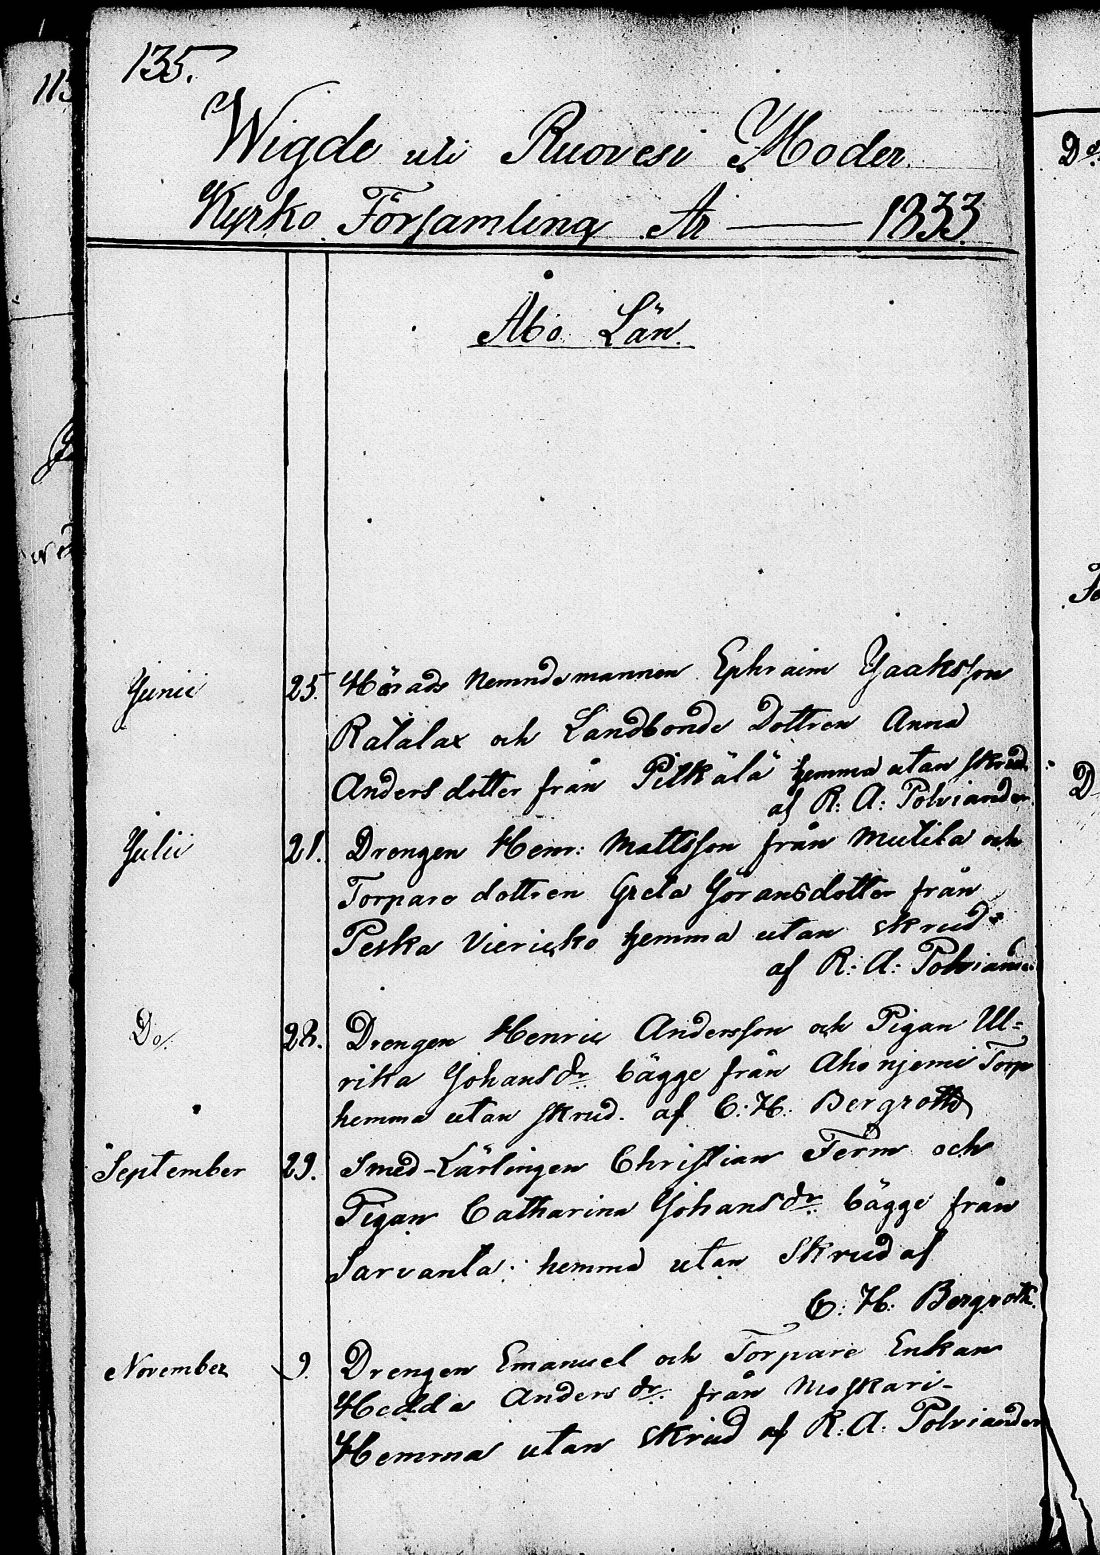 135.
Wigde uti Ruovesi Moder
Kyrko Församling År — 1833.
Åbo Län.
Junii 25. Härads Nemndemannen Ephraim Jaaksson
Ratalax och Landbonde Dottren Anna
Anders dotter från Pilkälä hemma utan skrud.
af R: A: Polviander
Julii 21. Drengen Henr: Mattsson från Mutila och
Torpare dottren Greta Göransdotter från
Peska Viericko hemma utan skrud
af R: A: Polviander
Do. 28. Drengen Henric Andersson och Pigan Ul=
rika Johans dr bägge från Ahonjemi Torp
hemma utan skrud. af C: H: Bergroth
September 29. Smed-Lärlingen Christian Ferm och
Pigan Catharina Johans dr. bägge från
Sarvanta. hemma utan Skrud af
C: H: Bergroth.
November 9. Drengen Emanuel och Torpare Enkan
Hedda Anders dr. från Moskari-
Hemma utan skrud af R: A: Polviander